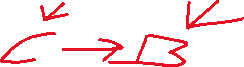 C → B